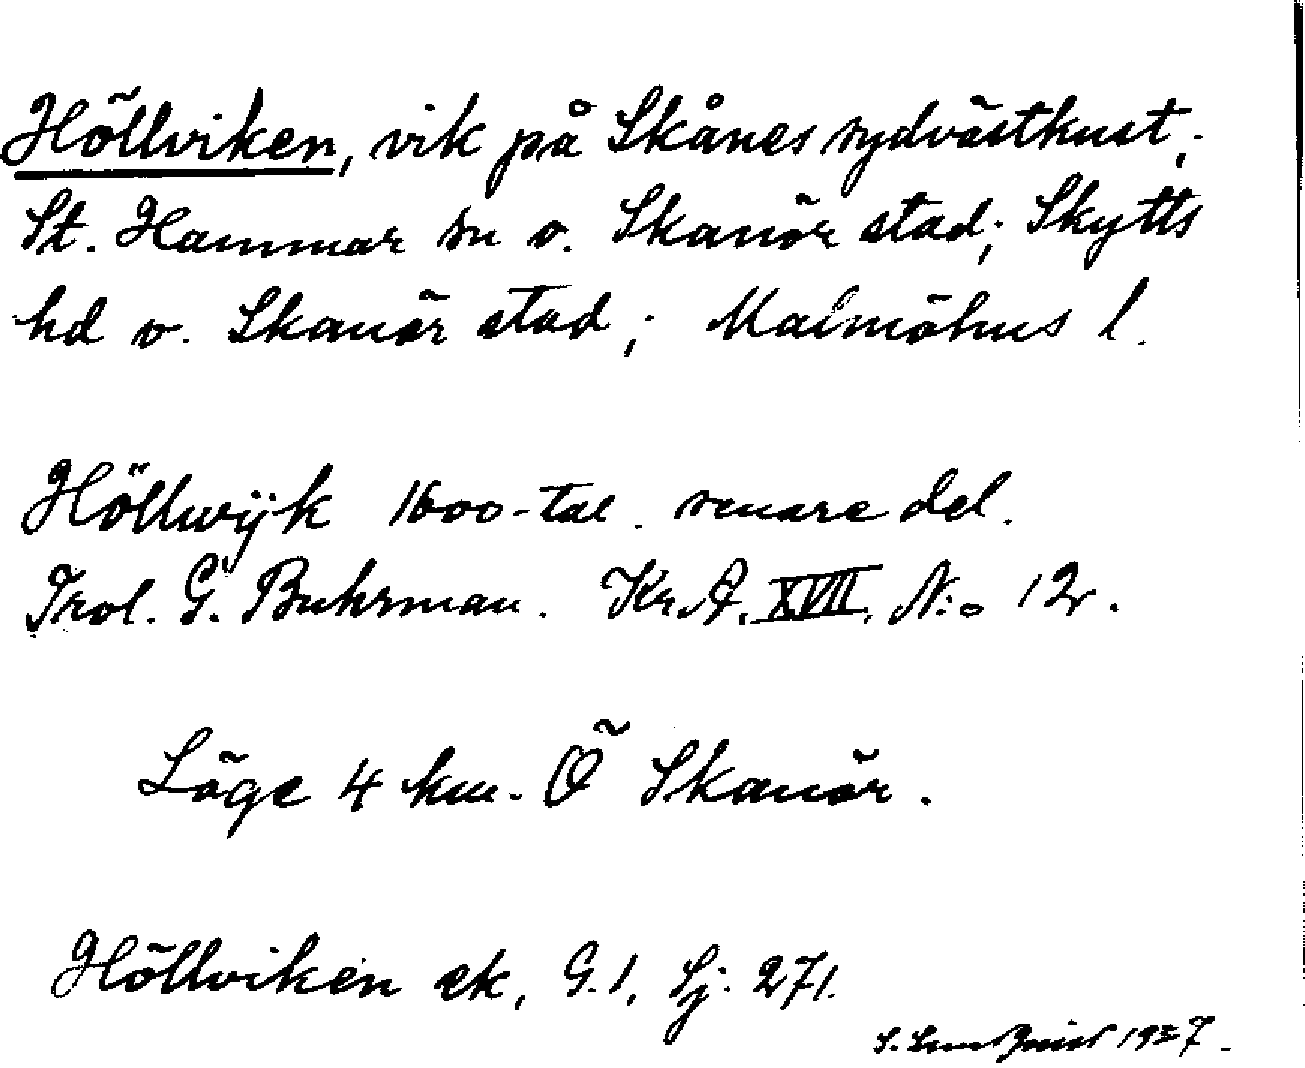 Höllviken, vik på Skånes sydvästkust,
St. Hammar sn o. Skanör stad; Skytts
hd o. Skanör stad; Malmöhus l.
Höllwijk 1600-tal. senare del.
Trol. G. Buhrman. Kr.A. XVII. N:o 12.
Läge 4 km. Ö Skanör.
Höllviken ek, G.1, Sj. 271.
S. 1927.